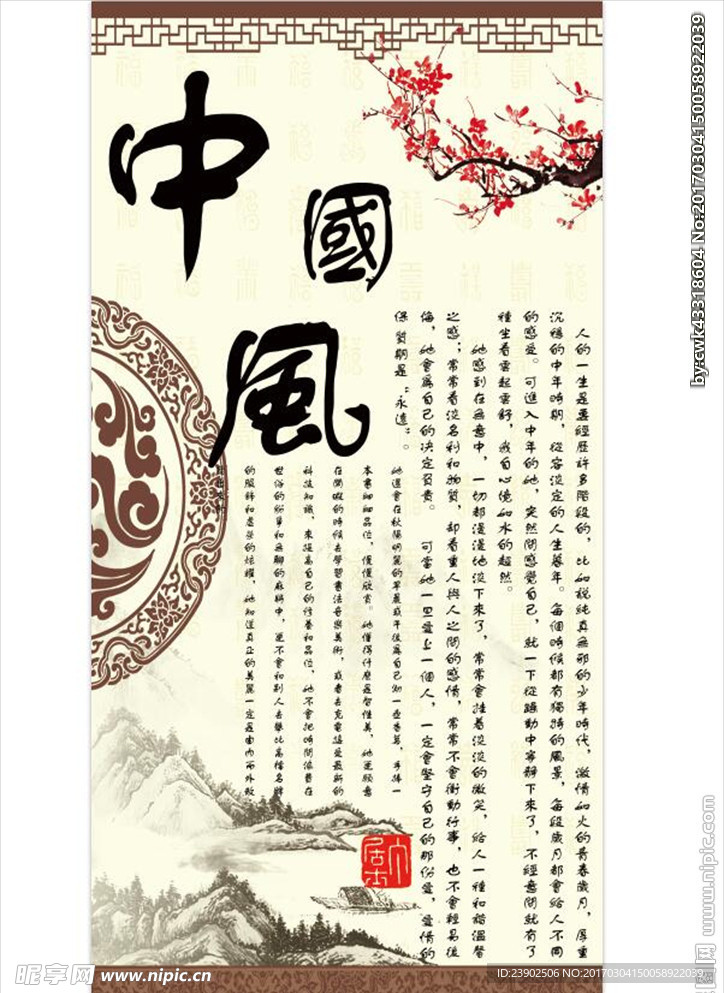 中
國
風
人的一生是要經歷許多階段的，比如稅純真無邪的少年時代，激情如火的青春歲月，厚重
沉穩的中年時期，從容淡定的人生暮年。每個時候都有獨特的風景，每段歲月都會給人不同
的感受。可進入中年的她，突然間感覺自己，就一下從躁動中寧靜下來了，不經意間就有了
種坐看雲起雲舒，我自心境如水的超然。
她感到在無意中，一切都漫漫地淡下來了，常常會掛着淡淡的微笑，給人一種和諧溫馨
之感；常常看淡名利和物質，却看重人與人之間的感情，常常不會衝動行事，也不會輕易後
悔，她會為自己的决定負責。可當她一旦愛上一個人，一定會堅守自己的那份愛，愛情的
保質期是“永遠”。
她還會在秋陽明麗的早晨或午後為自己沏一壺香茗，手捧一
本書細細品位，慢慢欣賞。她懂得什麼是智性美，她更願意
在閑暇的時候去學習書法音樂美術，或者去充電接受最新的
科技知識，來提高自己的修養和品位，她不會把時間浪費在
世俗的紛爭和無聊的麻將中，更不會和別人去攀比高檔名牌
的服飾和虛榮的炫耀，她知道真正的美麗一定是由內而外散
居士
昵享网 www.nipic.cn
ID:23902506 NO:20170304150058922039
by:cwk43318604 No:20170304150058922039
昵图网 www.nipic.com